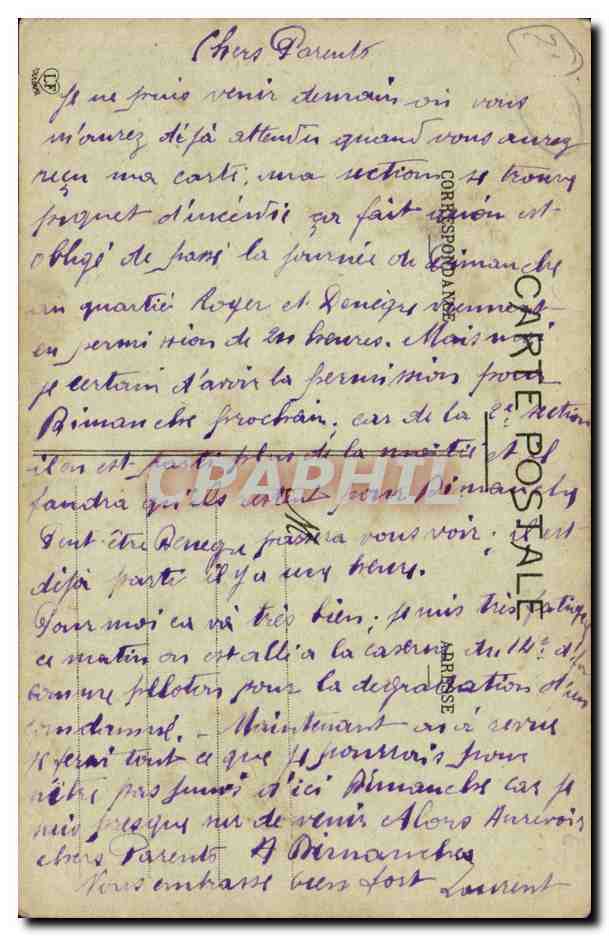 Chers Parents
Je ne puis venir demain où vous
m'aurez déjà attendu quand vous aurez
reçu ma carte, ma section se trouve
piquet d'incendie ça fait on est
obligé de passé la journée de dimanche
au quartié Roger et Denègre viennent
en permission de 24 heures. Mais moi
je certain d'avoir la permission pour
Dimanche prochain, car de la 2e section
il en est parti plus de la moitié et il
faudra qu'ils restent pour Dimanche
Peut être Denègre passera vous voir, il est
déjà parti il y a une heure.
Pour moi ca va très bien, je suis très fatigué
ce matin on est allé a la caserne du 14e d'
comme pelloton pour la degradation d'un
condamné. - Maintenant on a revue
je ferai tout ce que je pourrais pour
n'être pas puni d'ici Dimanche car je
suis presque sur de venir Alors Aurevoir
chers Parents A Dimanche
Vous embrasse bien fort Laurent
CARTE POSTALE
CORRESPONDANCE
ADRESSE
M
LF
CPAPHIL